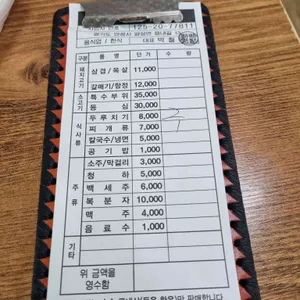 125-20-77811
음식업 / 한식 대표 박
구분 품 명 단 가 수 량
돼지고기 삼겹/목살 11,000
갈매기/항정 12,000
소고기 특수부위 35,000
등 심 30,000
식사류 두루치기 8,000 2
찌 개 류 7,000 1
칼국수/냉면 5,000
공 기 밥 1,000
주류 소주/막걸리 3,000
청 하 5,000
백 세 주 6,000
복 분 자 10,000
맥 주 4,000
음 료 수 1,000
기타
위 금액을
영수함
판매합니다